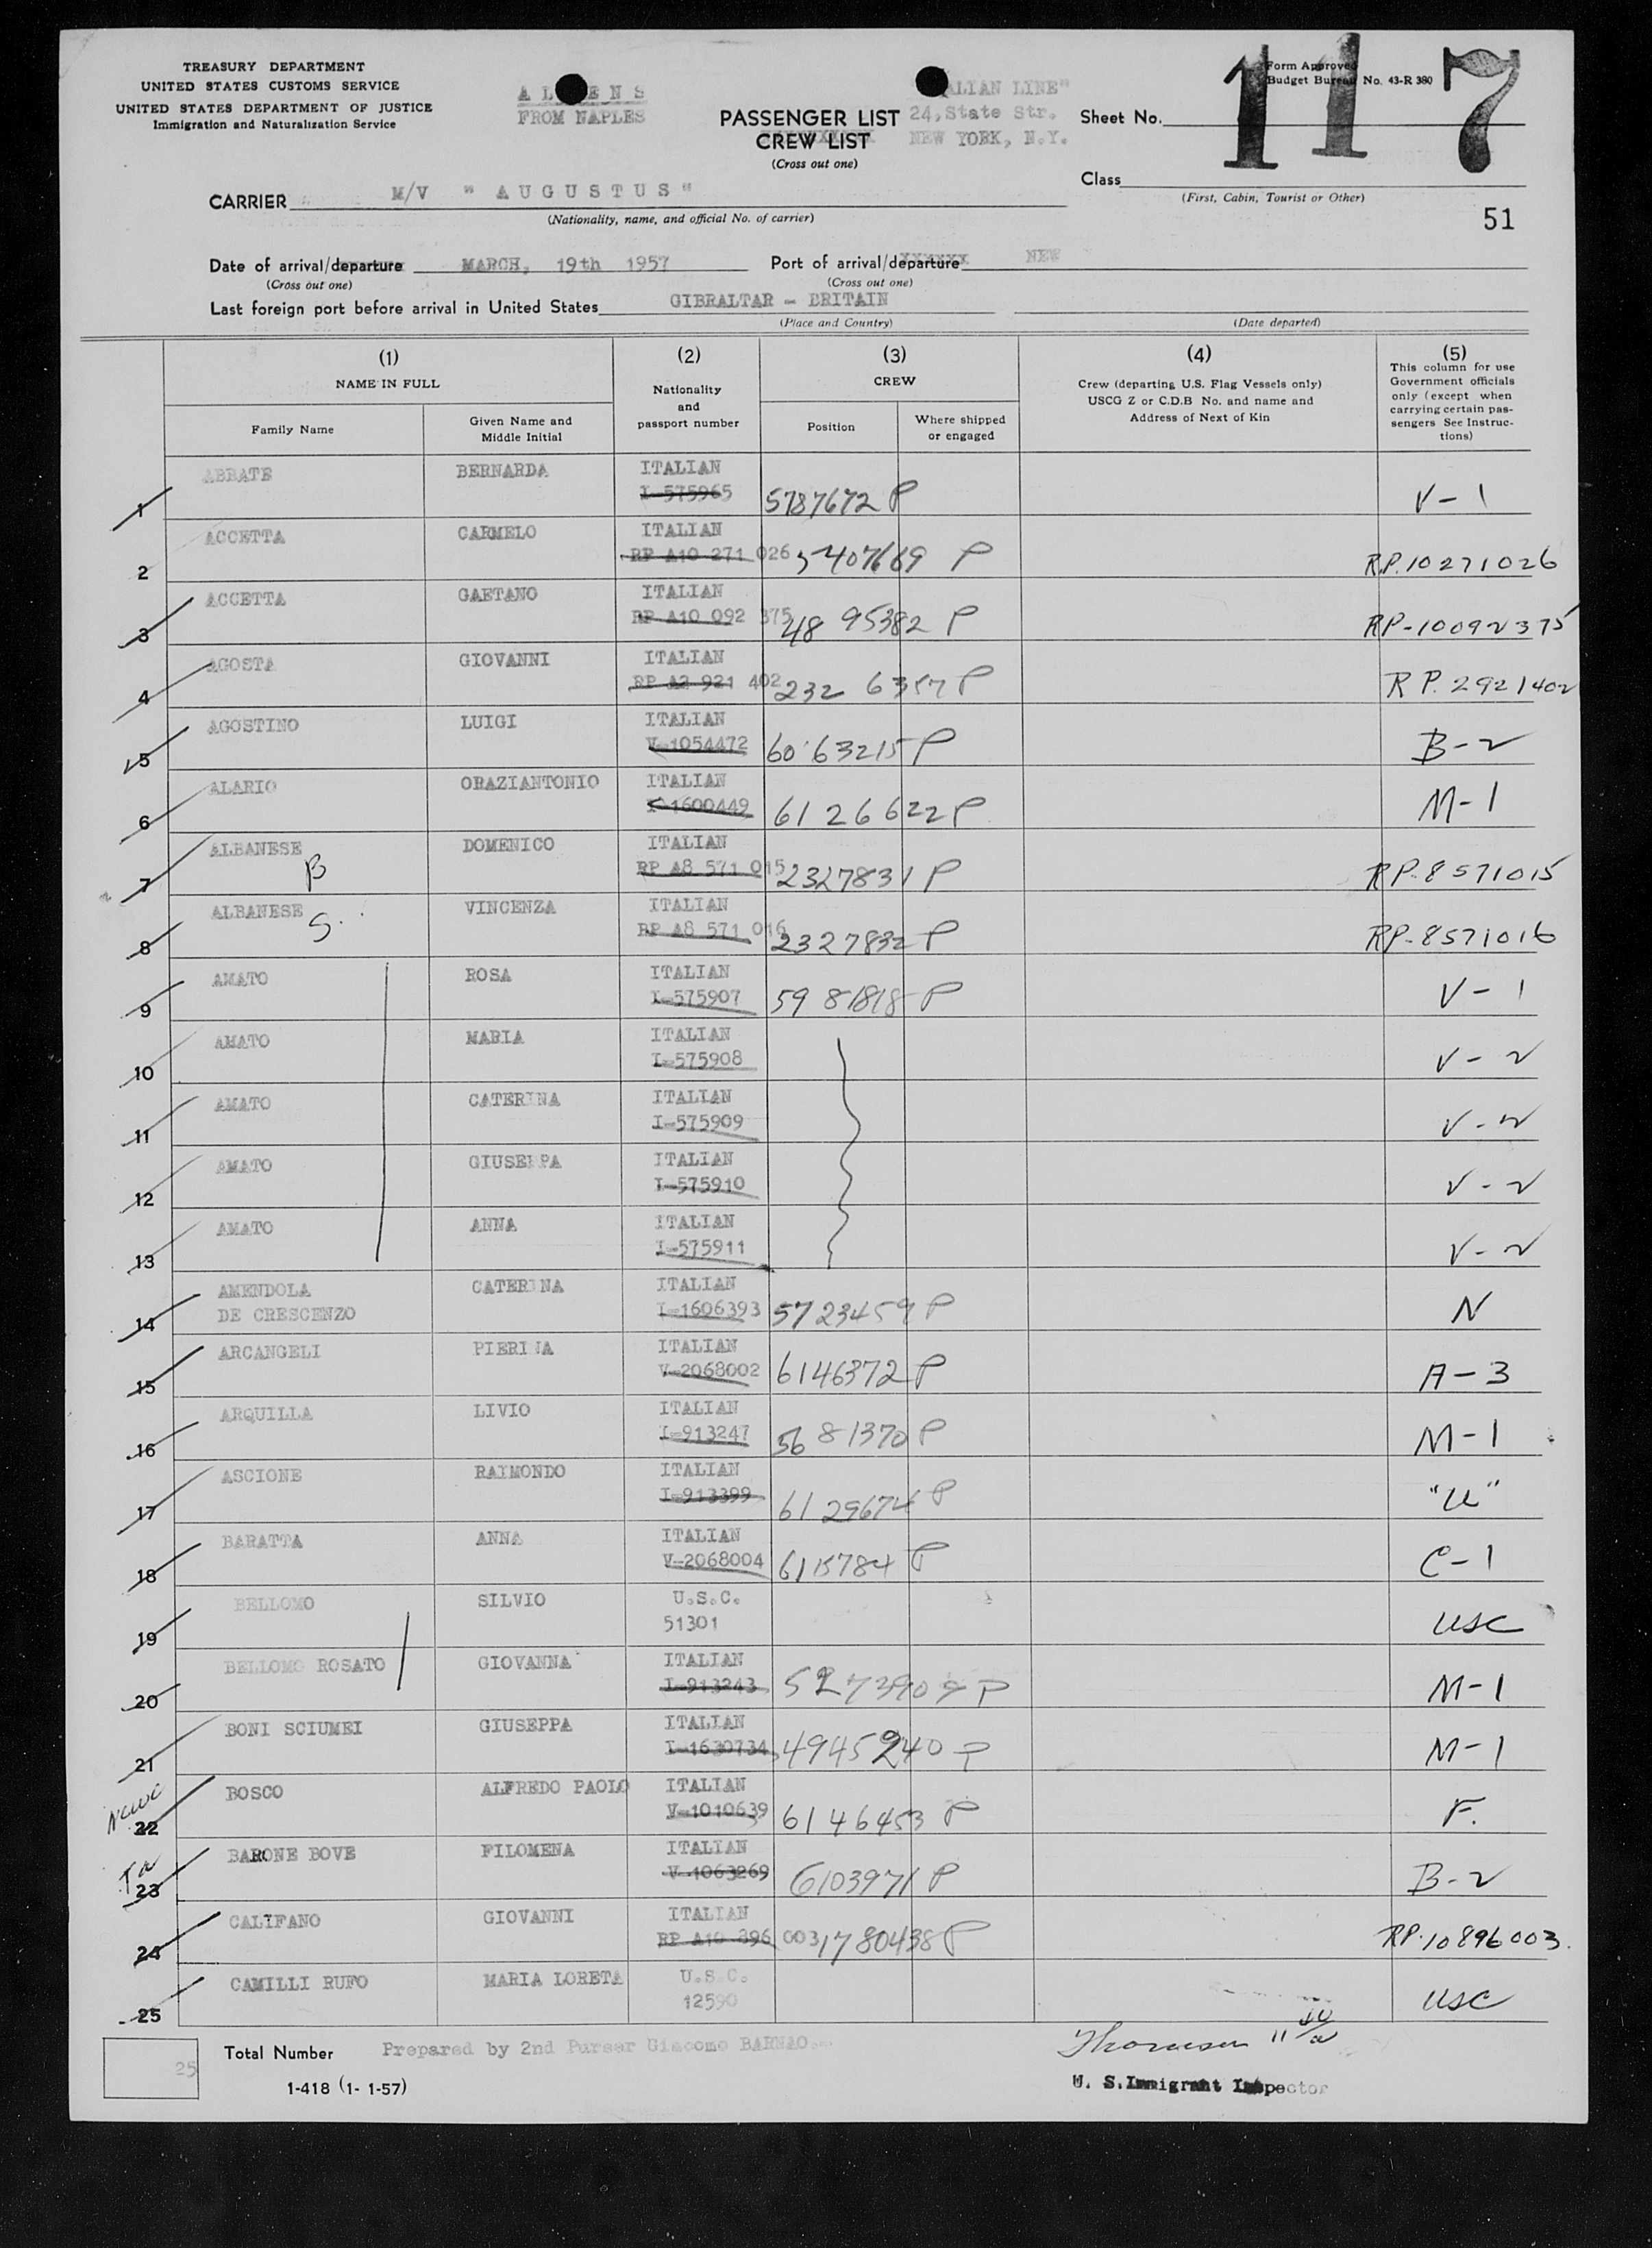 TREASURY DEPARTMENT
UNITED STATES CUSTOMS SERVICE
UNITED STATES DEPARTMENT OF JUSTICE
Immigration and Naturalization Service
FROM NAPLES
PASSENGER LIST
CREW LIST
(Cross out one)
ALIAN LINE"
24, State Str.
NEW YORK, N.Y.
Form Approved
Budget Bureau No. 43-R 380
Sheet No.
117
Class
(First, Cabin, Tourist or Other)
51
CARRIER M/V "AUGUSTUS"
(Nationality, name, and official No. of carrier)
Date of arrival/departure MARCH, 19th 1957 Port of arrival/departure NEW
(Cross out one) (Cross out one)
Last foreign port before arrival in United States GIBRALTAR - BRITAIN
(Place and Country) (Date departed)
(1) (2) (3) (4) (5)
NAME IN FULL
Family Name
Given Name and Middle Initial
Nationality and passport number
CREW
Position
Where shipped or engaged
Crew (departing U.S. Flag Vessels only)
USCG Z or C.D.B No. and name and
Address of Next of Kin
This column for use
Government officials
only (except when
carrying certain pas-
sengers See Instruc-
tions)
1 ABBATE BERNARDA ITALIAN I-575965 5787672 P V-1
2 ACCETTA CARMELO ITALIAN RP A10 271 026 5407669 P RP.10271026
3 ACCETTA GAETANO ITALIAN RP A10 092 375 4895382 P RP-10092375
4 AGOSTA GIOVANNI ITALIAN RP A2 921 402 2326357 P RP.2921402
5 AGOSTINO LUIGI ITALIAN V-1054472 6063215 P B-2
6 ALARIO ORAZIANTONIO ITALIAN I-1600449 6126622 P M-1
7 ALBANESE B DOMENICO ITALIAN RP A8 571 015 2327831 P RP-8571015
8 ALBANESE S. VINCENZA ITALIAN RP A8 571 016 2327832 P RP-8571016
9 AMATO ROSA ITALIAN I-575907 5981818 P V-1
10 AMATO MARIA ITALIAN I-575908 V-2
11 AMATO CATERINA ITALIAN I-575909 V-2
12 AMATO GIUSEPPA ITALIAN I-575910 V-2
13 AMATO ANNA ITALIAN I-575911 V-2
14 AMENDOLA DE CRESCENZO CATERINA ITALIAN I-1606393 5723459 P N
15 ARCANGELI PIERINA ITALIAN V-2068002 6146372 P A-3
16 ARQUILLA LIVIO ITALIAN I-913247 5681370 P M-1
17 ASCIONE RAIMONDO ITALIAN I-913399 6129674 P "U"
18 BARATTA ANNA ITALIAN V-2068004 6115784 P C-1
19 BELLOMO SILVIO U.S.C. 51301 USC
20 BELLOMO ROSATO GIOVANNA ITALIAN I-913243 P M-1
21 BONI SCIUMEI GIUSEPPA ITALIAN I-1630734 4945940 P M-1
22 BOSCO ALFREDO PAOLO ITALIAN V-1010639 6146453 P F.
23 BARONE BOVE FILOMENA ITALIAN V-1063269 6103971 P B-2
24 CALIFANO GIOVANNI ITALIAN RP A10 896 003 1780438 P RP.10896003.
25 CAMILLI RUFO MARIA LORETA U.S.C. 12590 USC
25 Total Number Prepared by 2nd Purser Giacomo BARNAO.-
1-418 (1- 1-57)
U. S. Immigrant Inspector